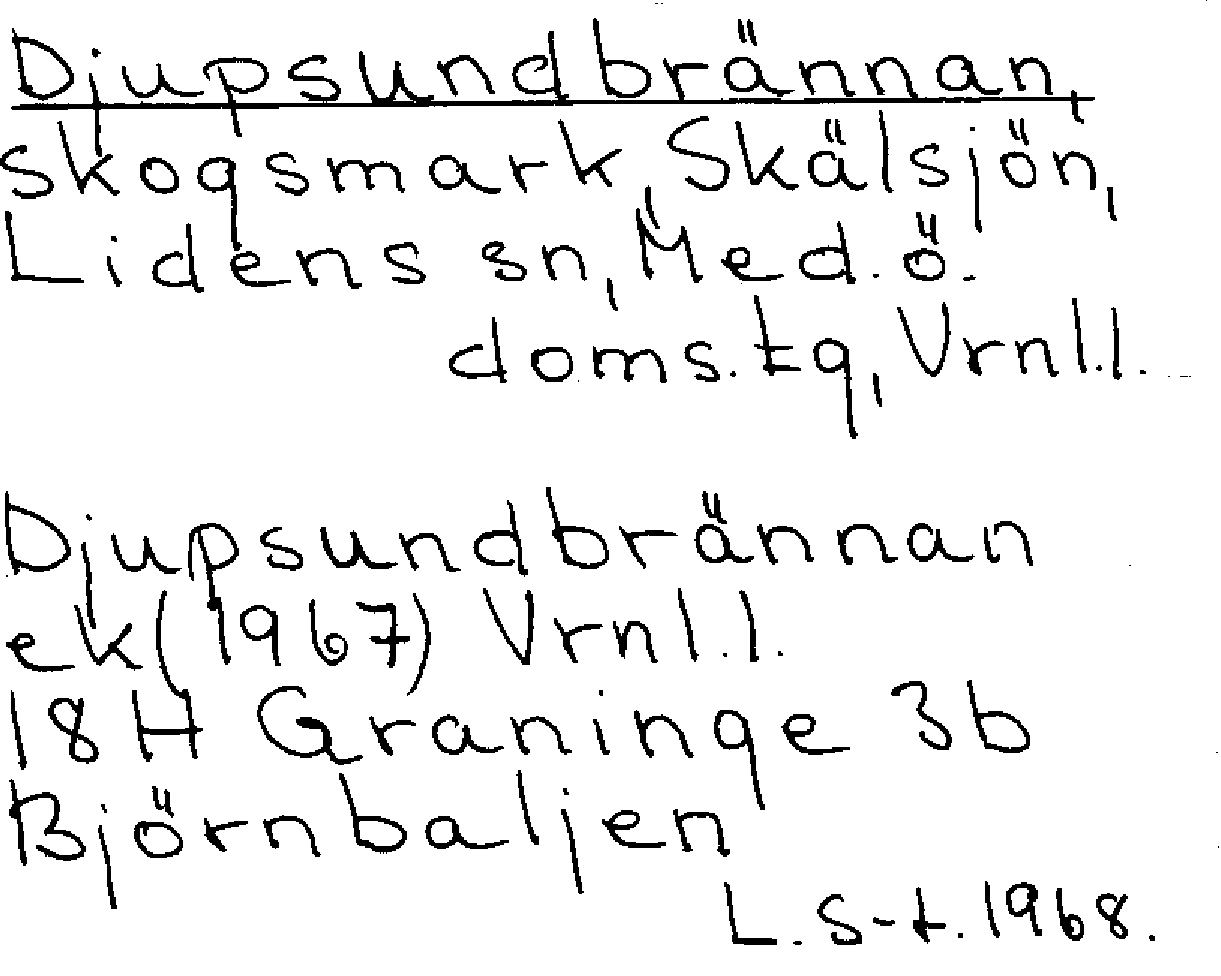 Djupsundbrännan,
skogsmark, Skälsjön,
Lidens sn, Med.ö.
doms.tg, Vrnl.l.
Djupsundbrännan
ek (1967) Vrnl.l.
18H Graninge 3b
Björnbaljen
L. S-t. 1968.